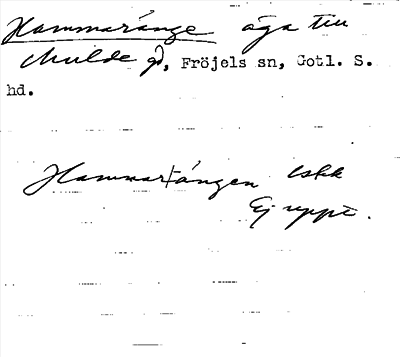 Hammaränge äga till
Mulde gd, Fröjels sn, Gotl. S.
hd.
Hammarängen Eskk
Ej uppt.